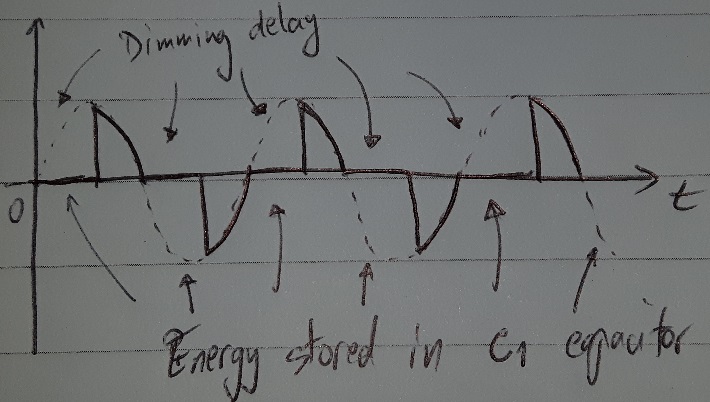 Dimming delay
0
t
Energy stored in C1 capacitor